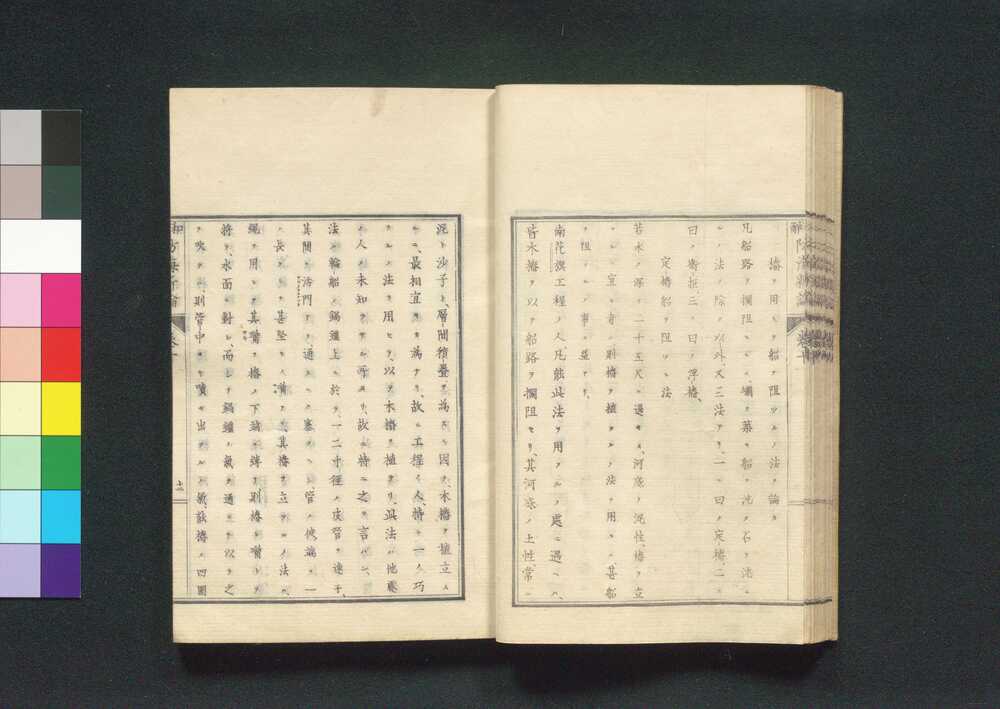 防海新論 卷十
樁ヲ用ヒテ船ヲ阻ツルノ法ヲ論ス
凡船路ヲ攔阻スルニ、壩ヲ築キ船ヲ沈メ石ヲ沈ム
ルノ法ヲ除クノ以外、又三法アリ、一ニ曰ク定樁、二ニ
曰ク寄拒、三ニ曰ク浮樁、
定樁船ヲ阻ツル法
若水ノ深サ二十五尺ニ過キス、河底ノ泥性樁ヲ立
ツルニ宜キ者ハ、則樁ヲ植ルノ法ヲ用ユ、甚船
ヲ阻ツルノ事ニ益アリ、
南花旗工程ノ人、凡能此法ヲ用フルノ處ニ遇ヘハ、
皆木樁ヲ以テ船路ヲ攔阻セリ、其河底ノ土性、常ニ
泥ト沙子ト、層間積疊ヲ為スニ因テ、木樁ヲ植立ス
ルニ、最相宜キヲ為セリ、故ニ工程ノ人、特ニ一ノ巧
ナルノ法ヲ用ヒテ、以テ木樁ヲ植タリ、其法ハ他處
ノ人ノ未知ラサル所ナリ、故ニ特ニ之ヲ言ハン、
法、輪船ノ鍋爐上ニ於テ、一二寸徑ノ皮管ヲ連子、
其間ニ活門アリ、通スヘク塞クヘシ、管ノ彼端ハ一
ノ長クシテ甚堅キノ嘴アリ、其樁ヲ立ツルノ法ハ、
繩ヲ用ヒテ其嘴ヲ樁ノ下端ニ縛シ、則樁ト嘴トヲ
將テ、水面ニ對シ、而シテ鍋爐ノ氣ヲ通シテ、以テ之
ヲ吹ク、則管中ヨリ噴キ出ツルノ氣、能樁ノ四圍
防海新論 卷十